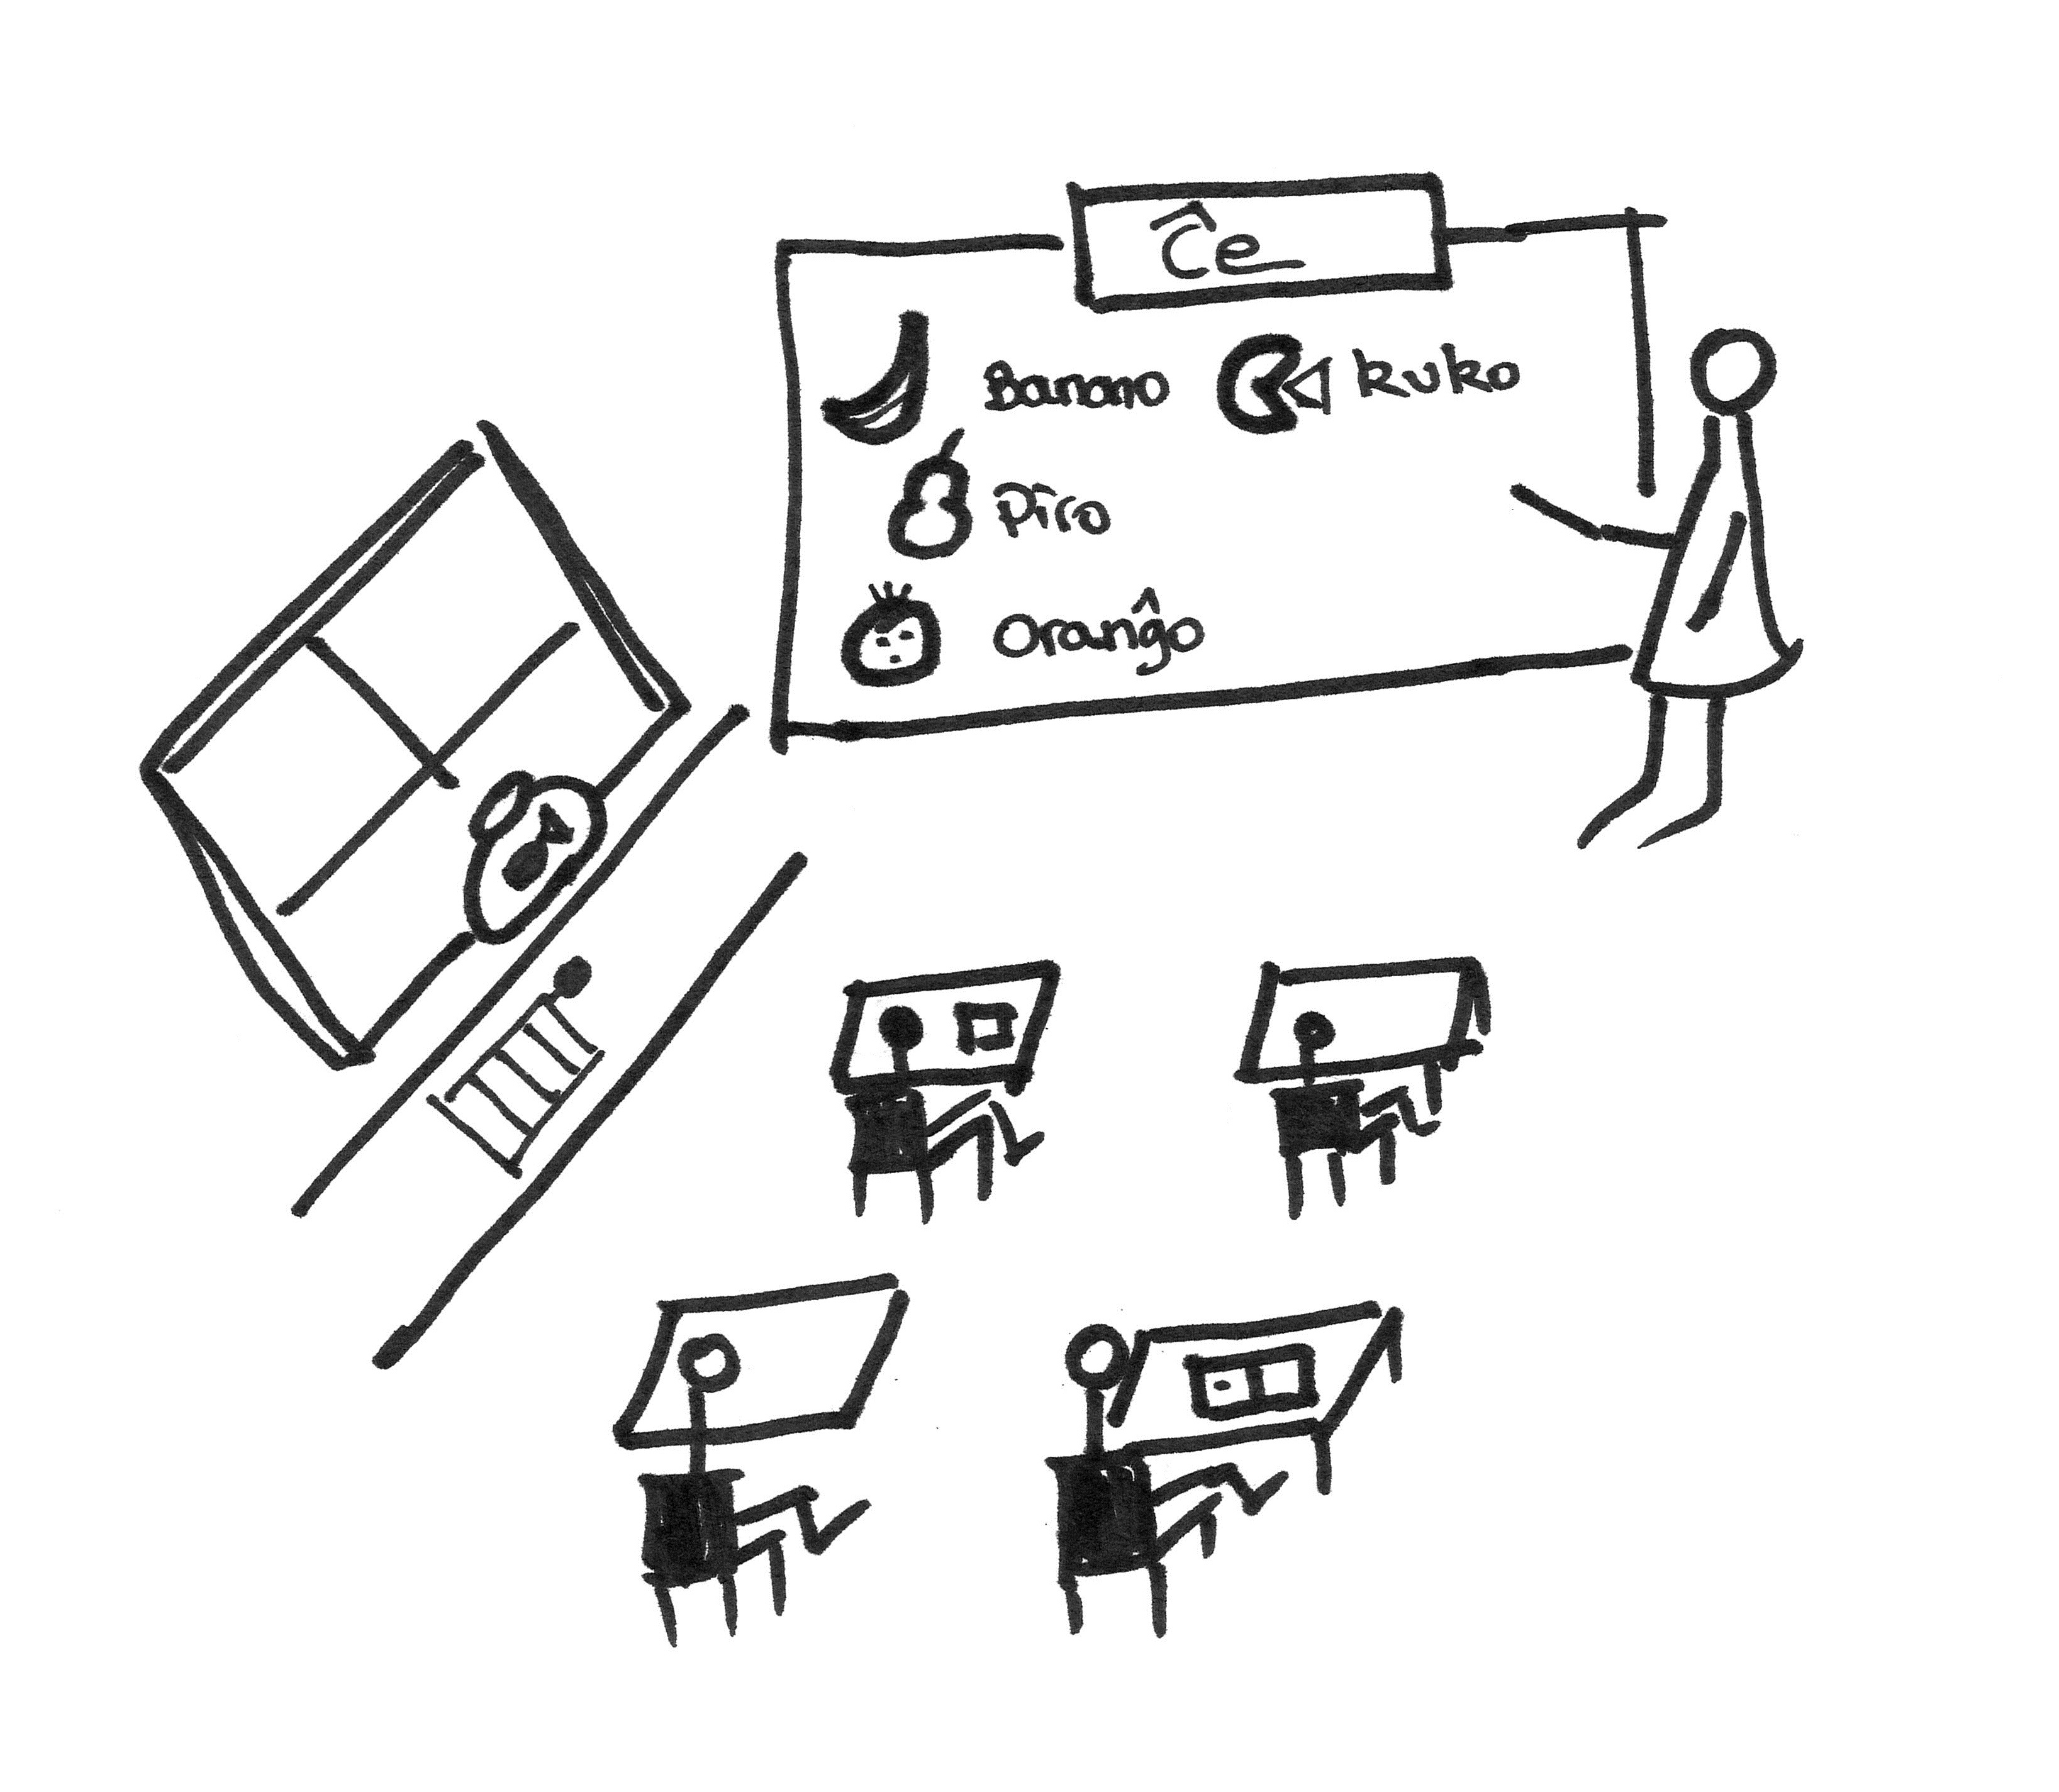 Ĉe
Banano kuko
Piro
Oranĝo